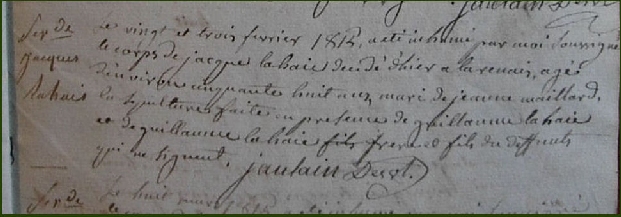 jaulain Dess.
Sep.re de
jacques
lahais
Le vingt et trois fevrier 1812, a eté inhumé par moi soussigné
le corps de jacque lahaie decédé d'hier a la renais, agé
d'environ cinquante huit ans, mari de jeanne maillard,
la sepulture faite en presence de guillaume lahaie
et de guillaume lahaie fils freres et fils du deffunts
qui ne signent. jaulain Dess.
Sep.re de
Le huit mars 1812 a eté inhumé